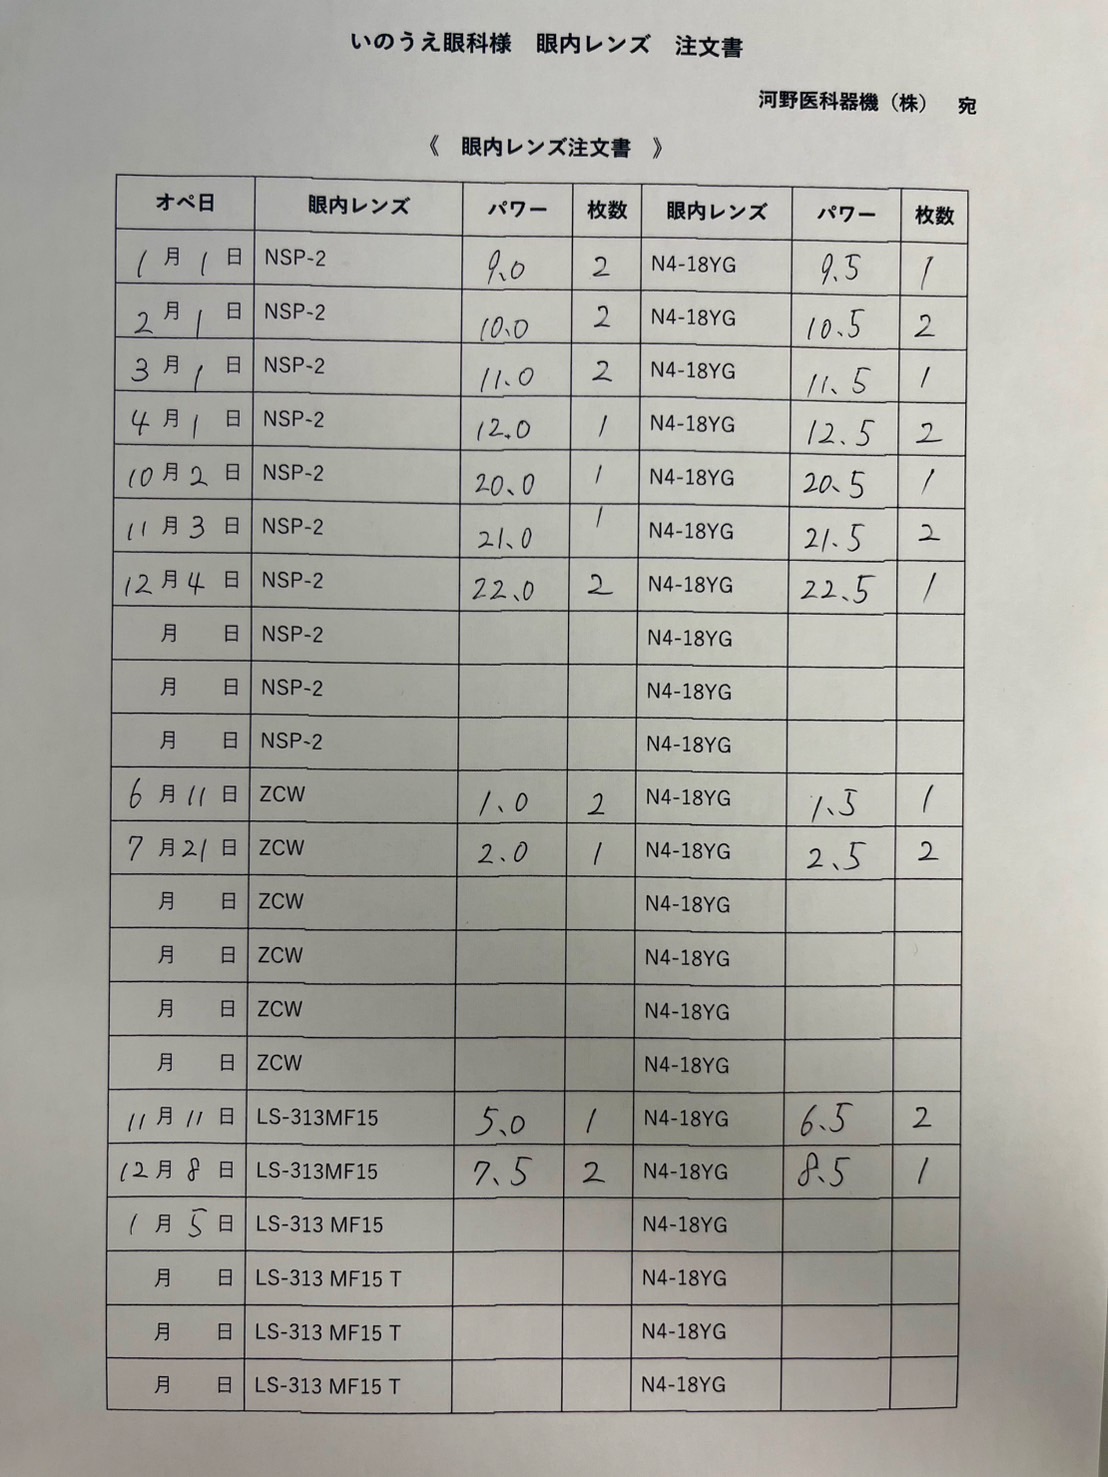 いのうえ眼科様 眼内レンズ 注文書
河野医科器機（株） 宛
《 眼内レンズ注文書 》
オペ日 眼内レンズ パワー 枚数 眼内レンズ パワー 枚数
1月1日 NSP-2 9.0 2 N4-18YG 9.5 1
2月1日 NSP-2 10.0 2 N4-18YG 10.5 2
3月1日 NSP-2 11.0 2 N4-18YG 11.5 1
4月1日 NSP-2 12.0 1 N4-18YG 12.5 2
10月2日 NSP-2 20.0 1 N4-18YG 20.5 1
11月3日 NSP-2 21.0 1 N4-18YG 21.5 2
12月4日 NSP-2 22.0 2 N4-18YG 22.5 1
月 日 NSP-2 N4-18YG
月 日 NSP-2 N4-18YG
月 日 NSP-2 N4-18YG
6月11日 ZCW 1.0 2 N4-18YG 1.5 1
7月21日 ZCW 2.0 1 N4-18YG 2.5 2
月 日 ZCW N4-18YG
月 日 ZCW N4-18YG
月 日 ZCW N4-18YG
月 日 ZCW N4-18YG
11月11日 LS-313MF15 5.0 1 N4-18YG 6.5 2
12月8日 LS-313MF15 7.5 2 N4-18YG 8.5 1
1月5日 LS-313 MF15 N4-18YG
月 日 LS-313 MF15 T N4-18YG
月 日 LS-313 MF15 T N4-18YG
月 日 LS-313 MF15 T N4-18YG